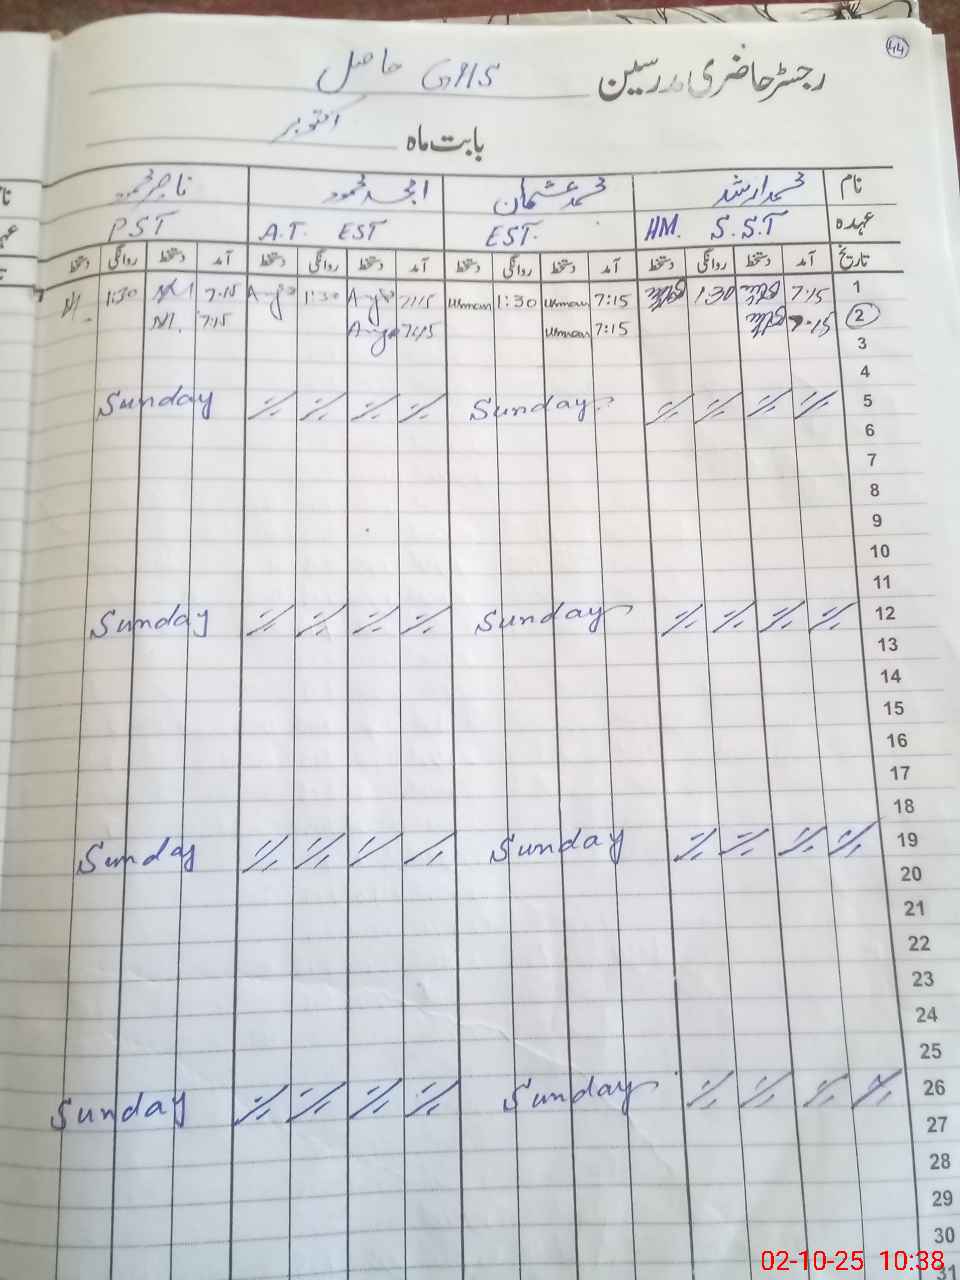 44
رجسٹر حاضری مدرسین GHS حاصل
بابت ماہ اکتوبر
نام محمد ارشد محمد عثمان امجد محمود ناصر محمود
عہدہ HM. S.S.T EST. A.T. EST PST
تاریخ آمد دستخط روانگی دستخط آمد دستخط روانگی دستخط آمد دستخط روانگی دستخط آمد دستخط روانگی دستخط
1 7:15 1:30 7:15 Usman 1:30 Usman 7:15 1:30 7:15 1:30
2 7:15 7:15 Usman 7:15 7:15
3
4
5 Sunday Sunday
6
7
8
9
10
11
12 Sunday Sunday
13
14
15
16
17
18
19 Sunday Sunday
20
21
22
23
24
25
26 Sunday Sunday
27
28
29
30
31
02-10-25 10:38